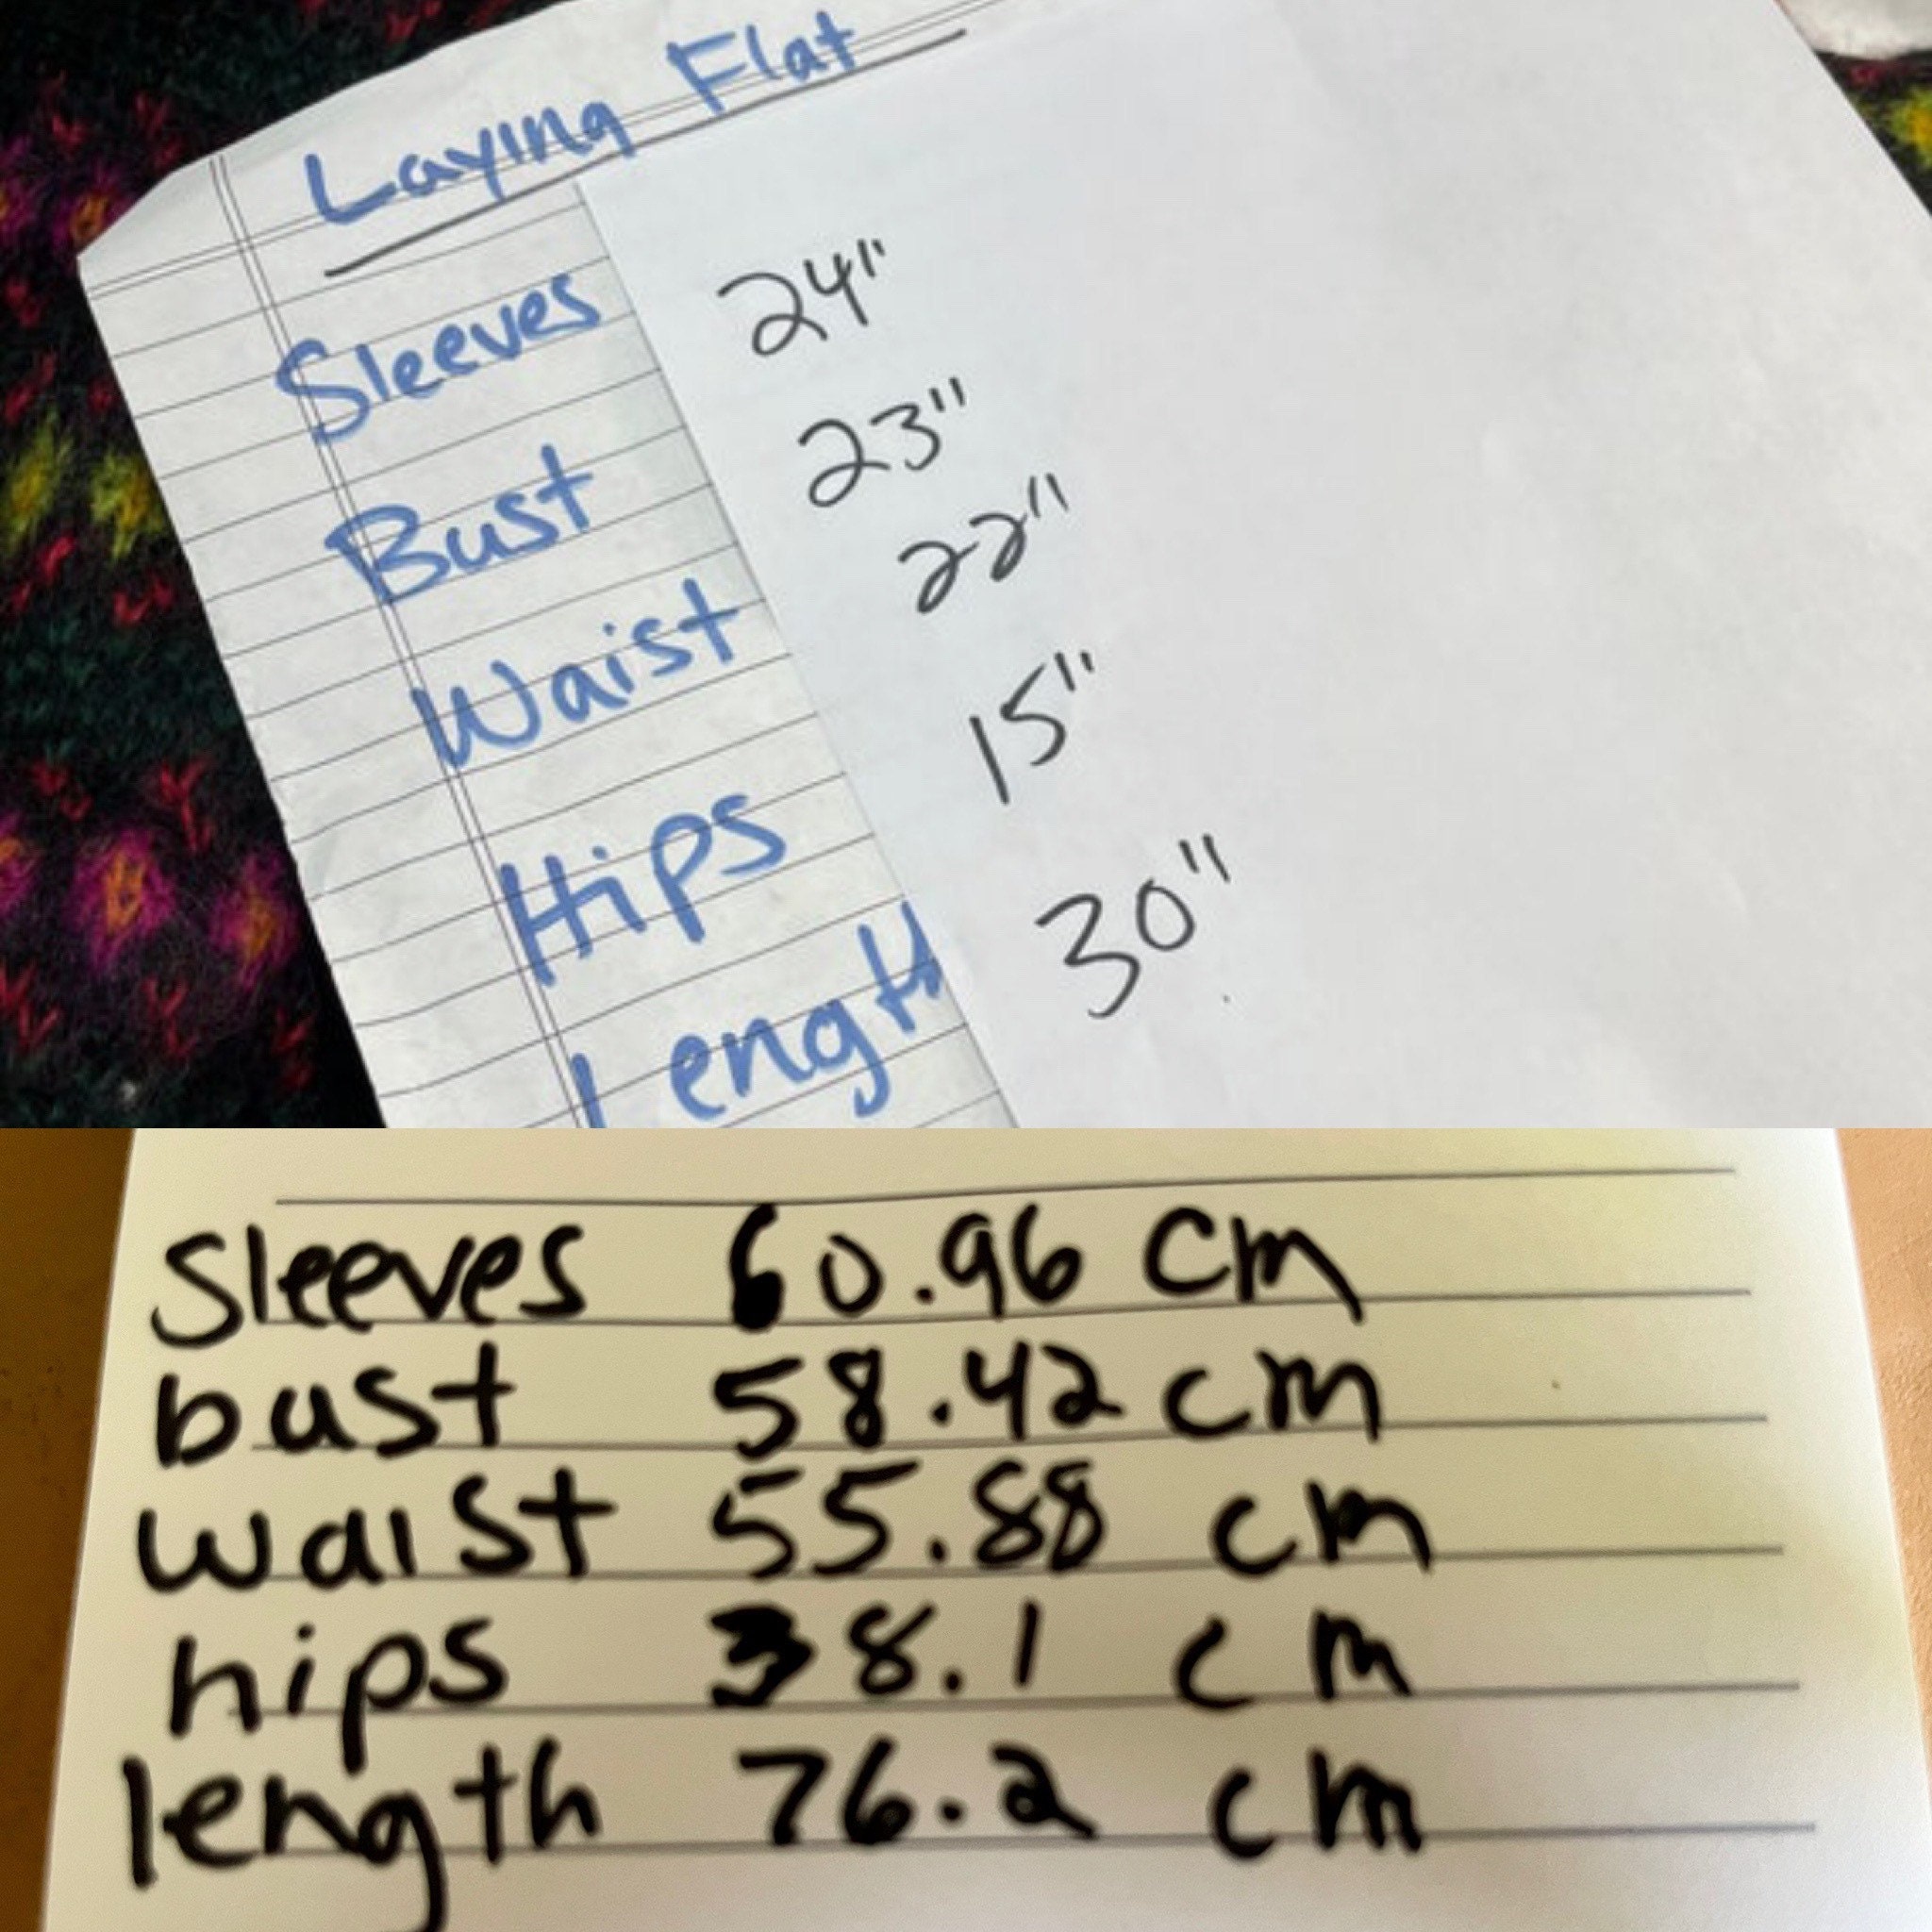 Laying Flat
Sleeves 24"
Bust 23"
Waist 22"
Hips 15"
Length 30"
Sleeves 60.96 cm
bust 58.42 cm
waist 55.88 cm
hips 38.1 cm
length 76.2 cm